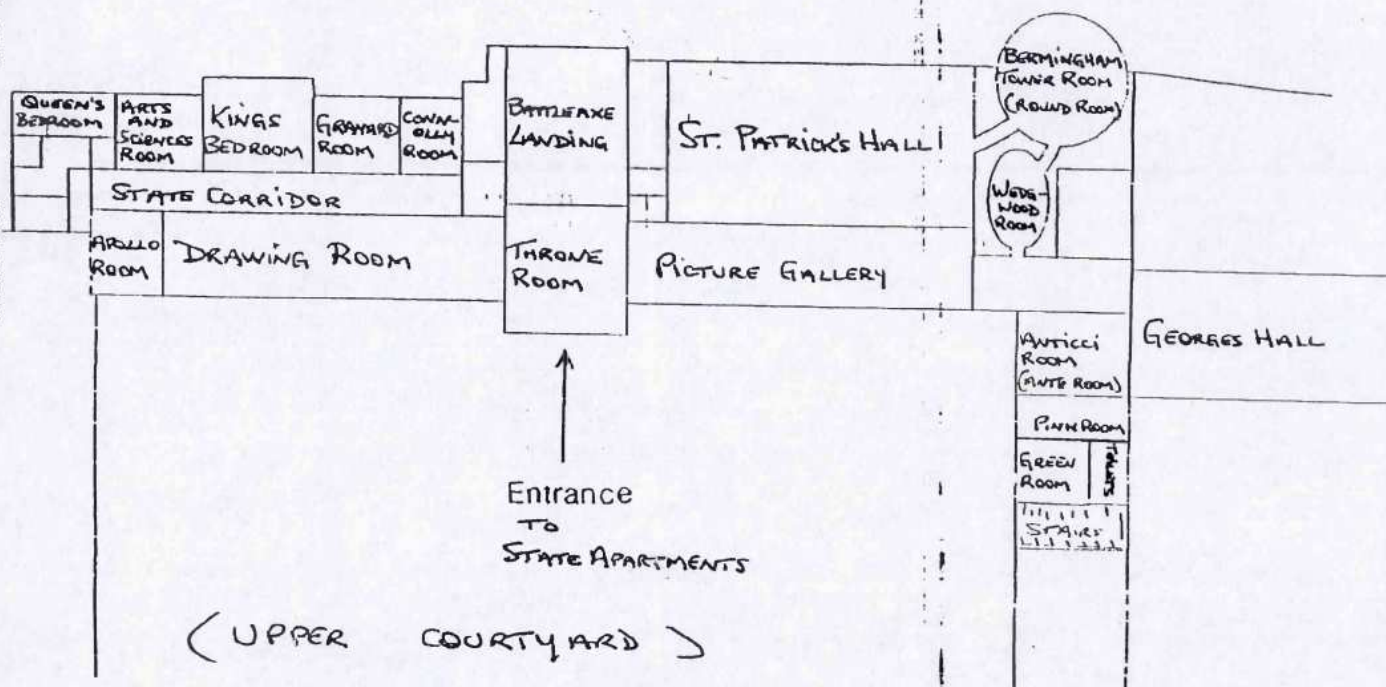 QUEEN'S
BEDROOM
ARTS
AND
SCIENCES
ROOM
KINGS
BEDROOM
GRANARD
ROOM
CONN-
OLLY
ROOM
BATTLEAXE
LANDING
ST. PATRICK'S HALL
BERMINGHAM
TOWER ROOM
(ROUND ROOM)
WEDG-
WOOD
ROOM
STATE CORRIDOR
APOLLO
ROOM
DRAWING ROOM
THRONE
ROOM
PICTURE GALLERY
ANTICCI
ROOM
(ANTE ROOM)
GEORGES HALL
PINK ROOM
GREEN
ROOM
TOILETS
STAIRS
Entrance
TO
STATE APARTMENTS
(UPPER COURTYARD)